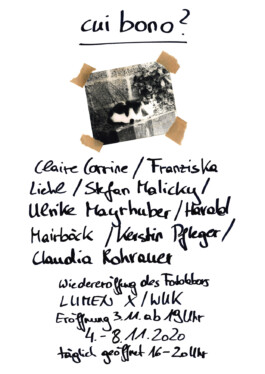 cui bono?
Claire Corrine / Franziska
Liehl / Stefan Malicky /
Ulrike Mayrhuber / Harald
Mairböck / Kerstin Pfleger /
Claudia Rohrauer
Wiedereröffnung des Fotolabors
LUMEN X / WUK
Eröffnung 3.11. ab 19 Uhr
4.-8.11.2020
täglich geöffnet 16-20 Uhr